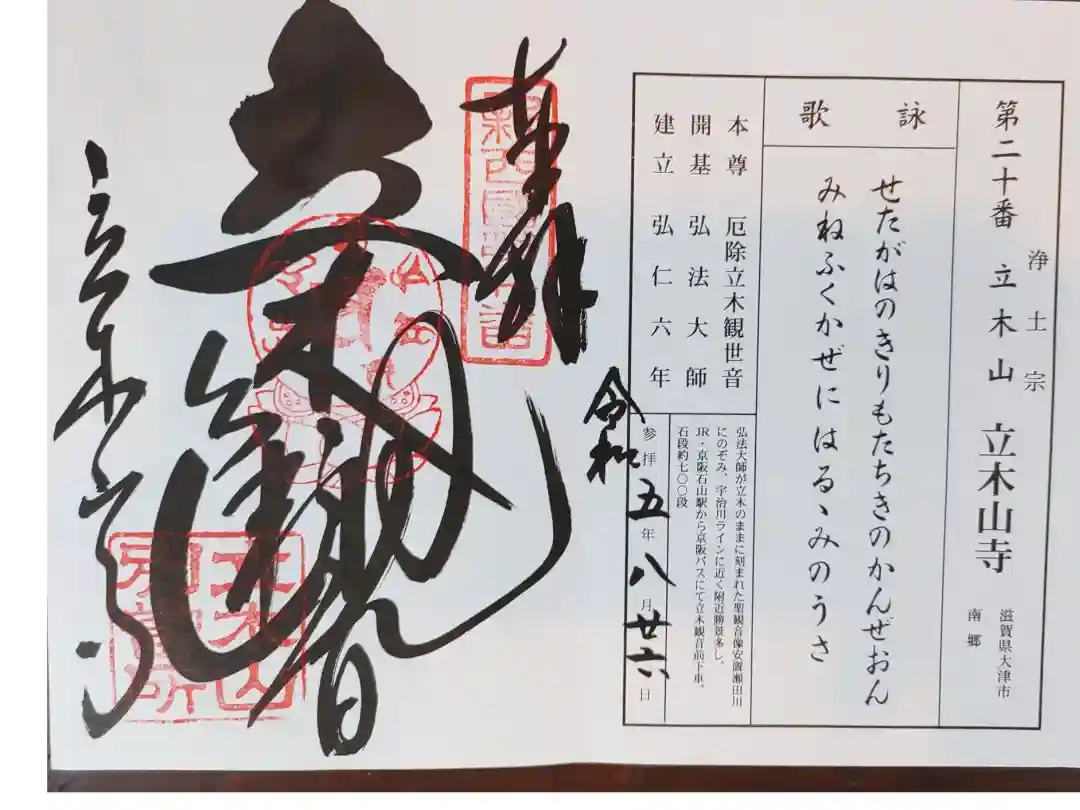 第二十番 立木山 立木山寺
浄土宗
滋賀県大津市
南郷
詠歌
せたがはのきりもたちきのかんぜおん
みねふくかぜにはるヽみのうさ
本尊 厄除立木観世音
開基 弘法大師
建立 弘仁六年
弘法大師が立木のままに刻まれた聖観音像安置瀬田川
にのぞみ、宇治川ラインに近く附近勝景多し。
JR・京阪石山駅から京阪バスにて立木観音前下車。
石段約七〇〇段
令和
参拝五年八月廿六日
奉拝
立木観音
立木山寺